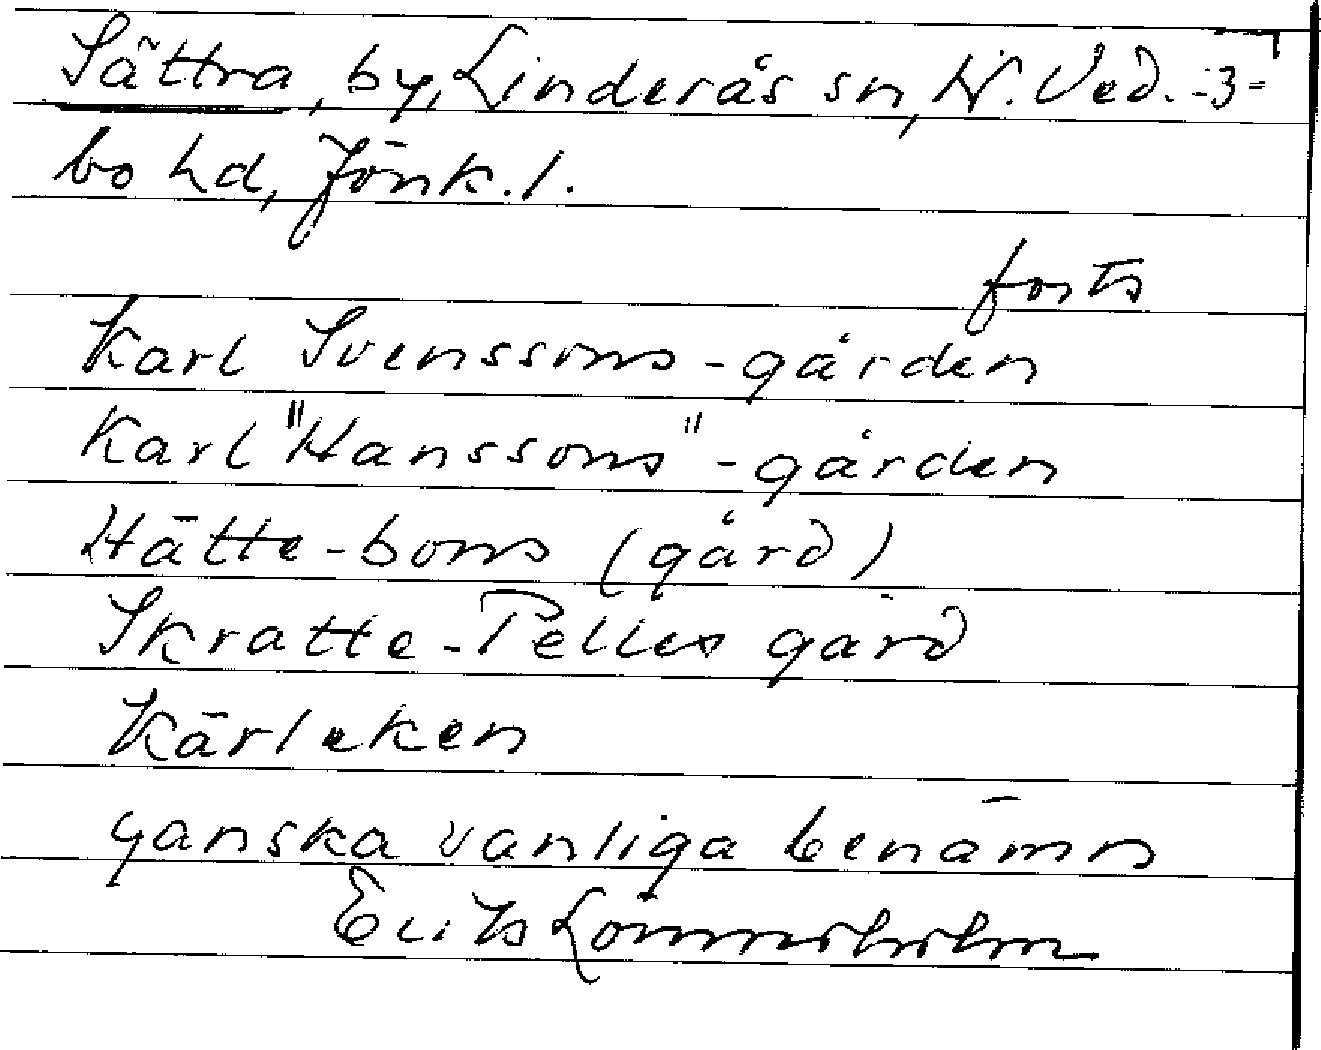 Sättra, by, Linderås sn, N. Ved. -3-
bo hd, Jönk. l.
forts
Karl Svenssons-gården
Karl "Hanssons"-gården
Hätte-bons (gård)
Skratte-Pelles gård
Kärleken
ganska vanliga benämn